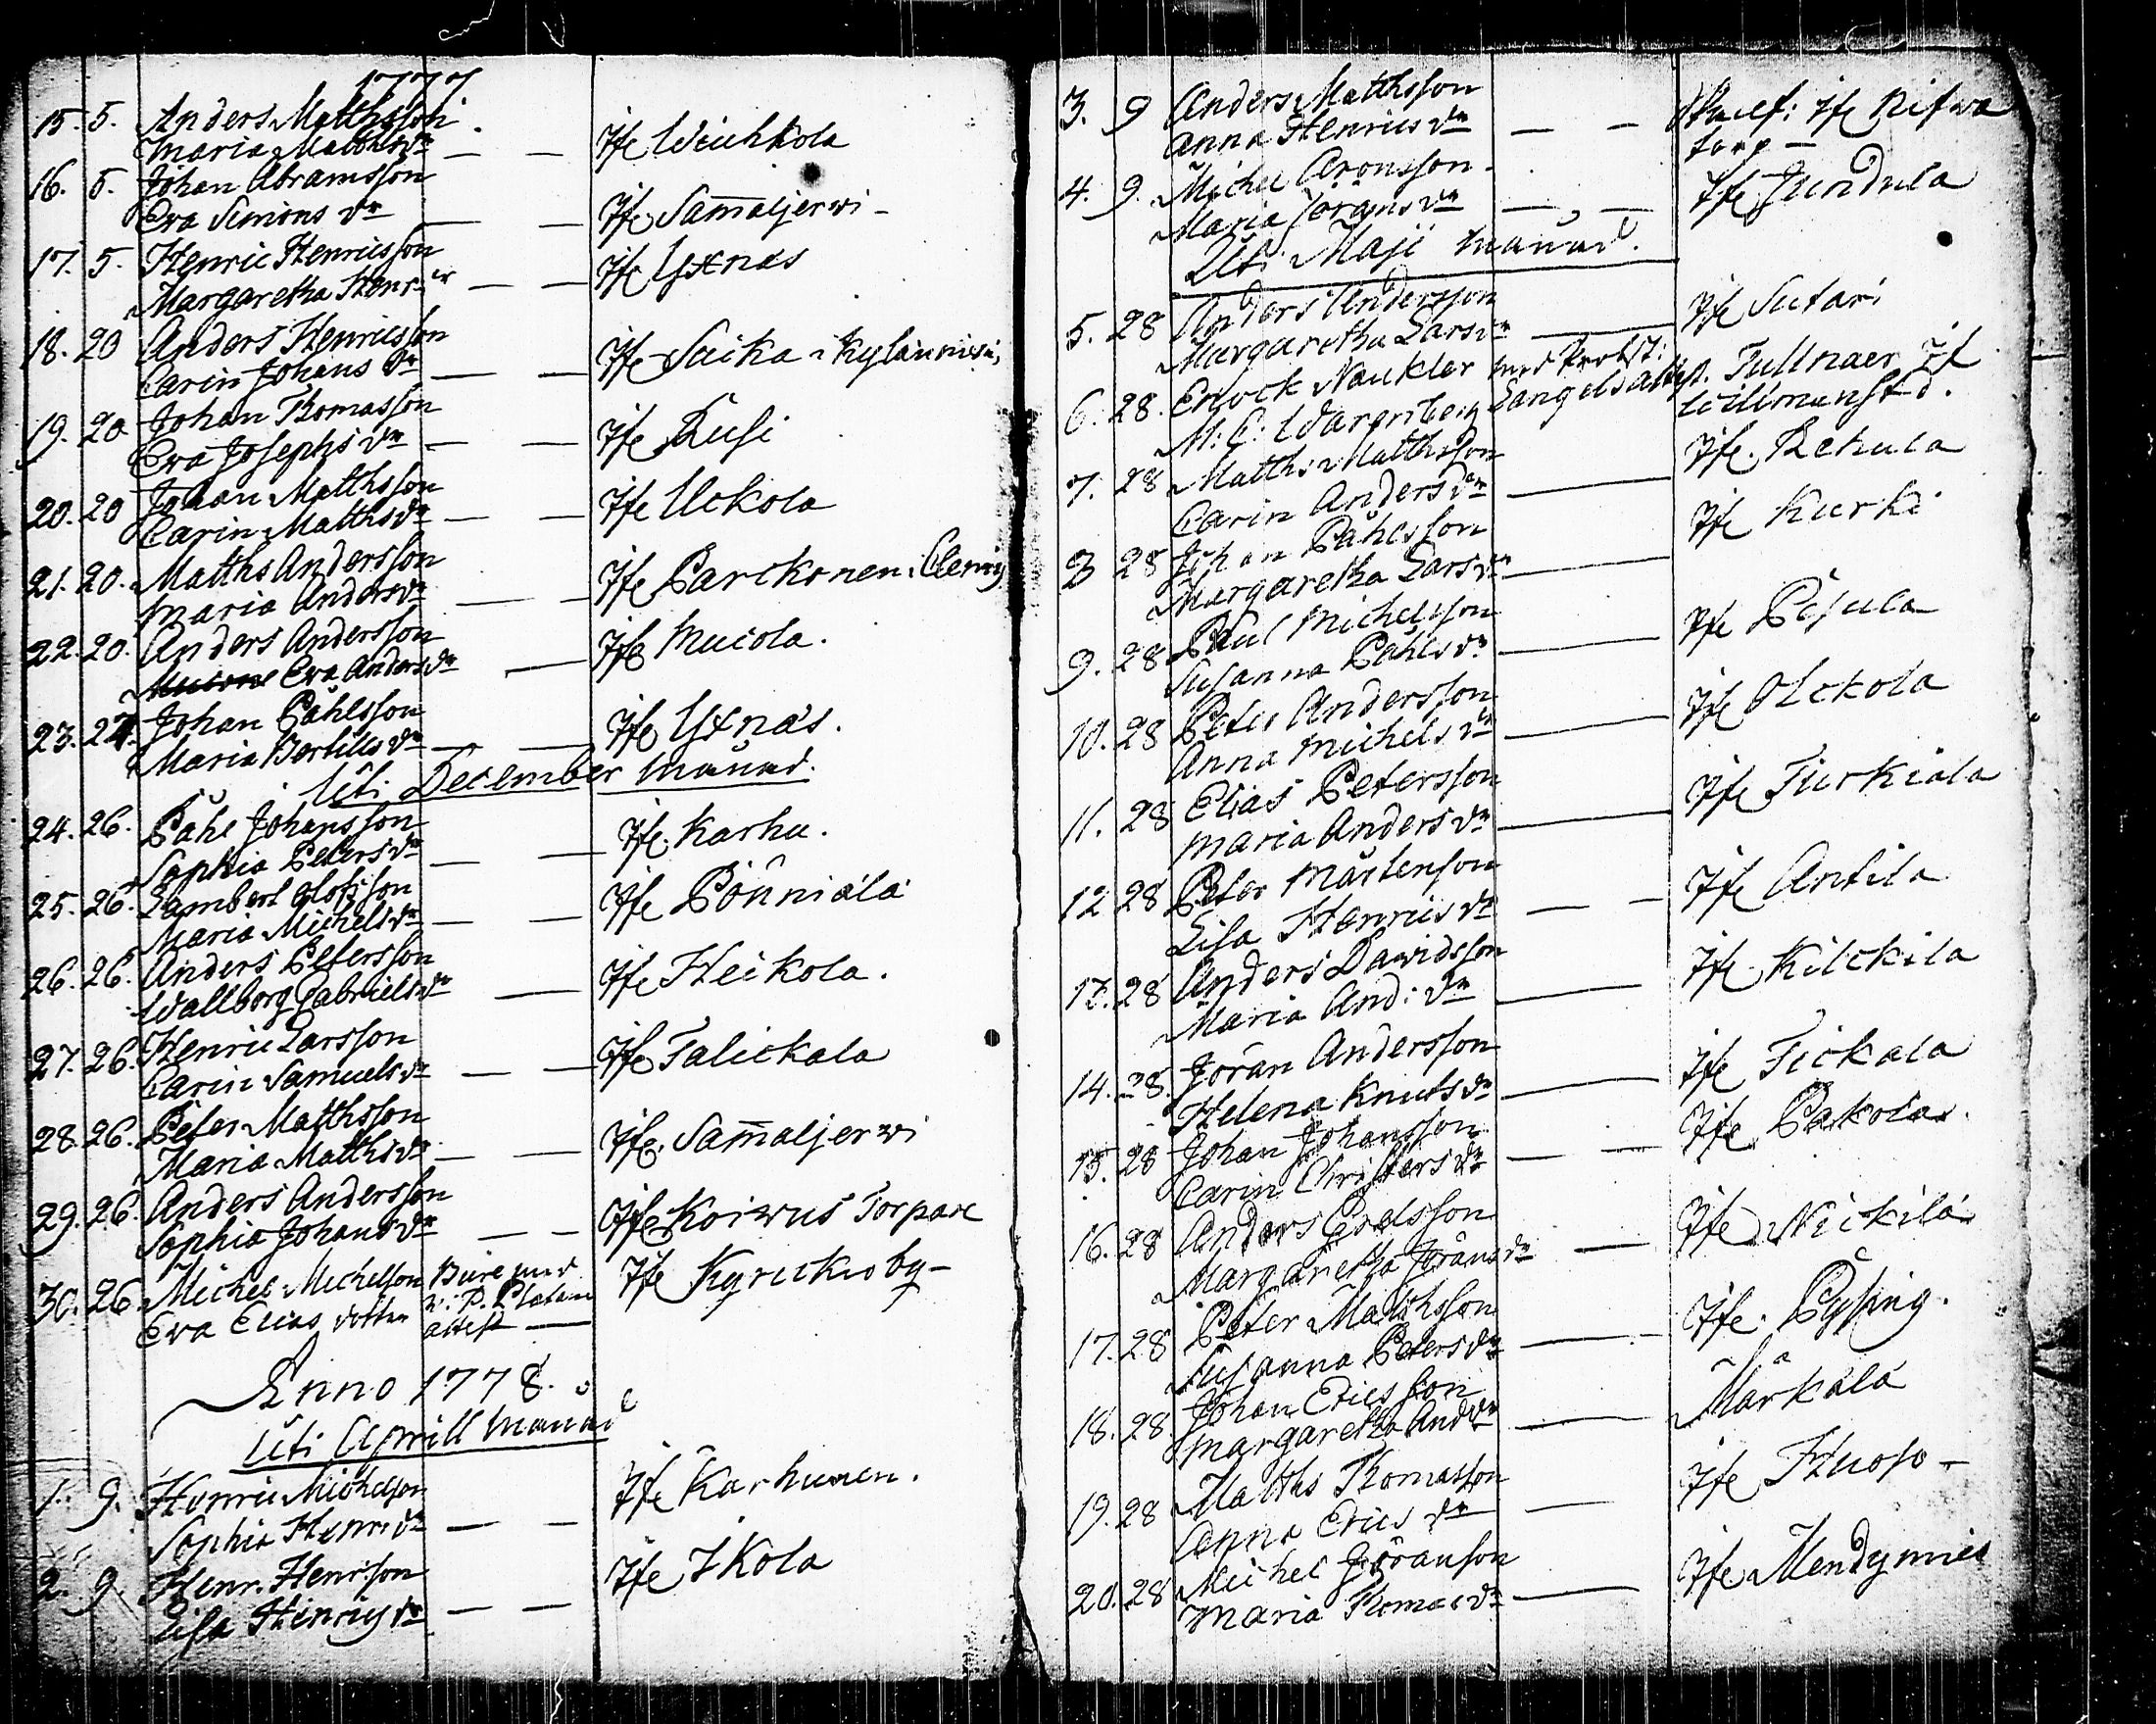 1777
15. 5. Anders Matthsson
Maria Matthsdr — — Ife Weuhkola
16. 5. Johan Abramsson
Eva Simons dr — — Ife Sam̄aljerwi -
17. 5. Henric Henricsson
Margaretha Henr: dr — — Ife Yxnäs
18. 20 Anders Henricsson
Carin Johans dr — — Ife Suika i Kylänniemi
19. 20 Johan Thomasson
Eva Josephs dr — — Ife Kusi
20. 20 Johan Matthsson
Carin Matthsdr — — Ife Uckola
21. 20. Matths Andersson
Maria Andersdr — — Ife Parckonen i Clemis
22. 20. Anders Andersson
Eva Andersdr — Ife Muiola.
23. 27. Johan Påhlsson
Maria Bertills dr — — Ife Yxnäs.
Uti December Månad.
24. 26. Påhl Johansson
Sophia Petersdr — — Ife Karhu.
25. 26. Lambert Olofsson
Maria Michelsdr — — Ife Pönniälä
26. 26. Anders Petersson
Wallborg Gabrielsdr — Ife Heikola.
27. 26. Henric Larsson
Carin Samuelsdr — — Ife Talickala
28. 26. Peter Matthsson
Maria Matthsdr — — Ife Sam̄aljerwi
29. 26. Anders Andersson
Sophia Johansdr — — Ife Koiwus Torpare
30. 26. Michel Michelsson
Eva Elias dotter attest — Ife Kyrckioby -
Anno 1778.
Uti Aprill Månad
1. 9. Henric Michelsson
Sophia Henr: dr — — Ife Karhunen.
2. 9. Henr. Henrsson
Lisa Henricsdr — — Ife Ikola
3. 9 Anders Matthsson
Anna Henrics dr — — Ife
torp —
4. 9. Michel Aronsson
Maria Jörans dr — — Ife Jundula
Uti Maji Månad.
5. 28 Anders Andersson
Margaretha Larsdr — Ife Sutari
6. 28. Enock Naukler med Probst:
M: C: Wargberg Langels attest. Tullnaer if
Willmanstd.
7. 28 Matths Matthsson
Carin Anders dr — Ife. Rekula
8 28 Johan Påhlsson
Margaretha Larsdr — Ife Kurki
9. 28 Paul Michelsson
Susanna Påhlsdr — Ife Pesula
10. 28 Peter Andersson
Anna Michels dr — Ife Olckola
11. 28 Elias Petersson
Maria Anders dr — Ife Turkiala
12 28 Peter Mårtensson
Lisa Henrics dr — — Ife Antila
13. 28 Anders Dawidsson
Maria And: dr — Ife Kilckila
14. 28. Jöran Andersson
Helena Knutsdr — Ife Tickala
15. 28 Johan Johansson
Carin Christersdr — — Ife Pakola.
16. 28 Anders
Margaretha Jöransdr — Ife Nickilä
17. 28 Peter Matthsson
Susanna Petersdr — Ife. Pysing.
18. 28. Johan Ericsson
Margaretha And dr — Märkälä
19. 28 Matths Thomasson
Anna Erics dr — Ife Huoso -
20. 28 Michel Jöransson
Maria Thomasdr — Ife Mendynnies